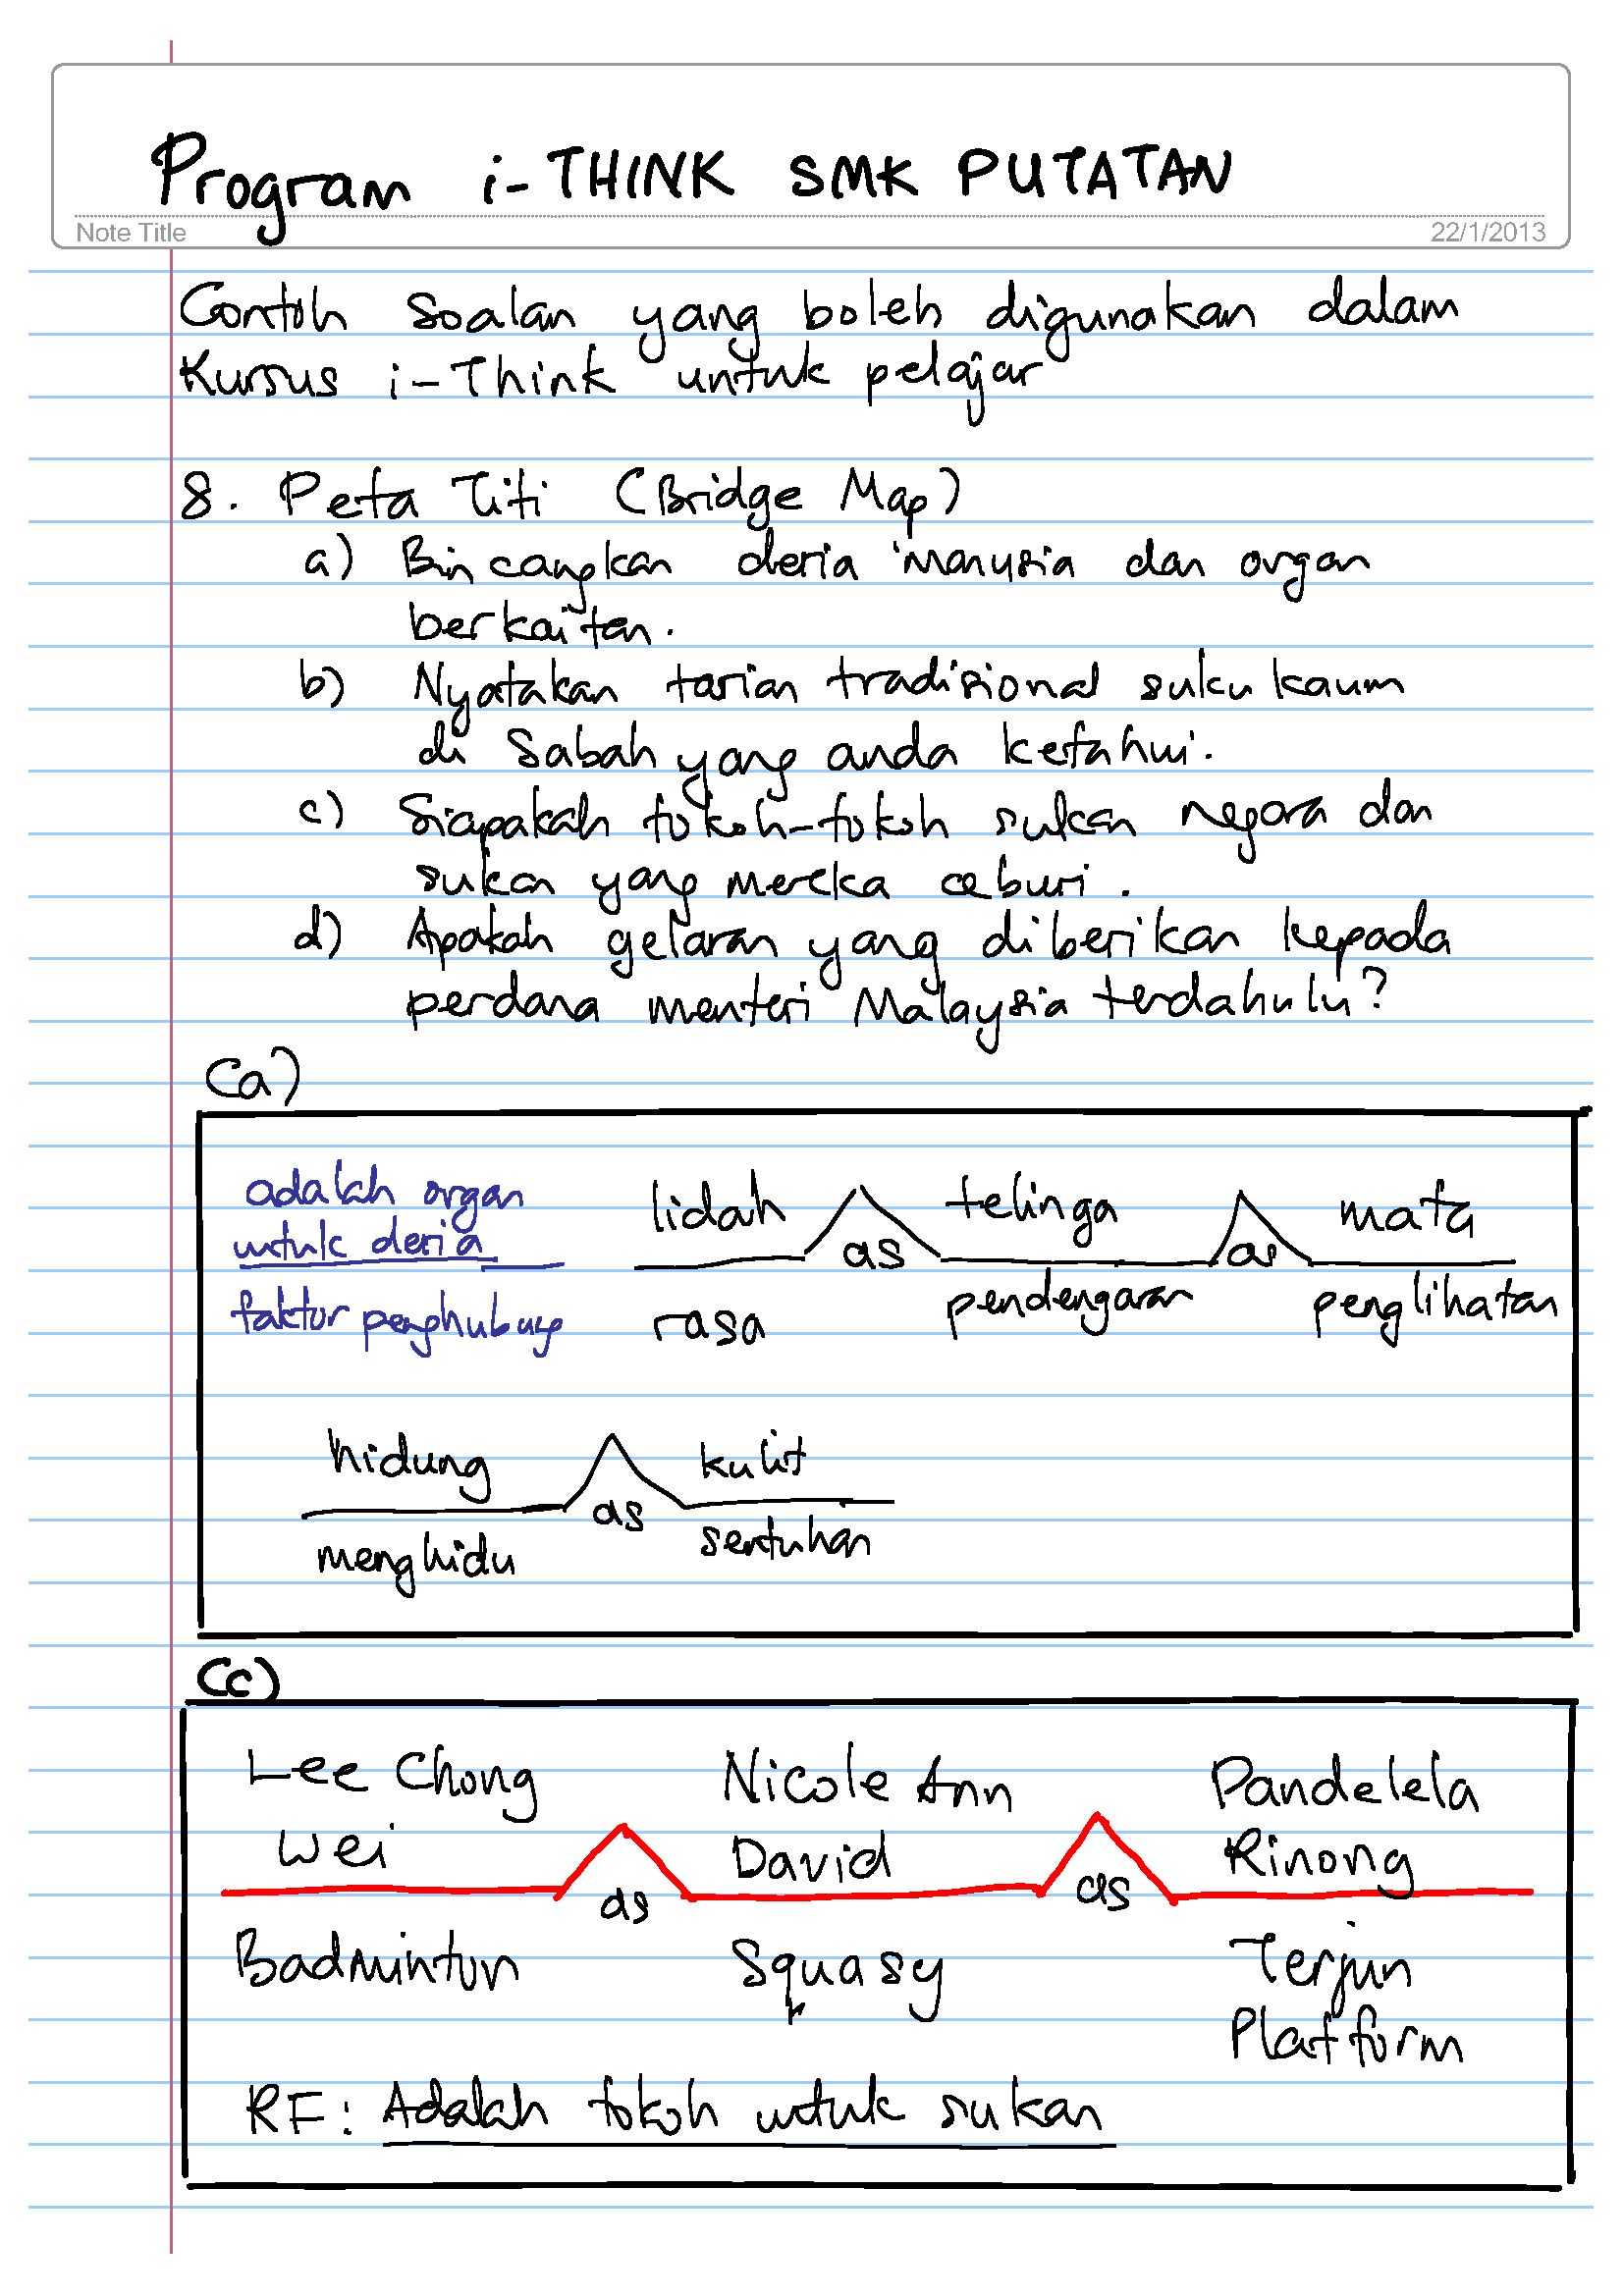 Program i-THINK SMK PUTATAN
Note Title 22/1/2013
Contoh Soalan yang boleh digunakan dalam
Kursus i-Think untuk pelajar
8. Peta Titi (Bridge Map)
a) Bincangkan deria manusia dan organ
berkaitan.
b) Nyatakan tarian tradisional suku kaum
di Sabah yang anda ketahui.
c) Siapakah tokoh-tokoh sukan negara dan
sukan yang mereka ceburi.
d) Apakah gelaran yang diberikan kepada
perdana menteri Malaysia terdahulu?
(a)
adalah organ
untuk deria
faktor penghubung
lidah as telinga as mata
rasa pendengaran penglihatan
hidung as kulit
menghidu sentuhan
(c)
Lee Chong Nicole Ann Pandelela
Wei David Rinong
as as
Badminton Squasy Terjun
Platform
RF: Adalah tokoh untuk sukan